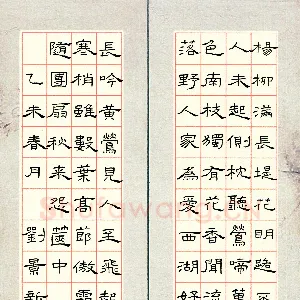 楊柳滿長堤花明路
人未起側枕聽鶯啼萬
色南枝獨有花香聞流
落野人家為愛西湖好
長吟黃鶯見人至飛起
寒梢雖數葉高節傲霜
隨團扇秋来從篋中
乙未春月劉景新